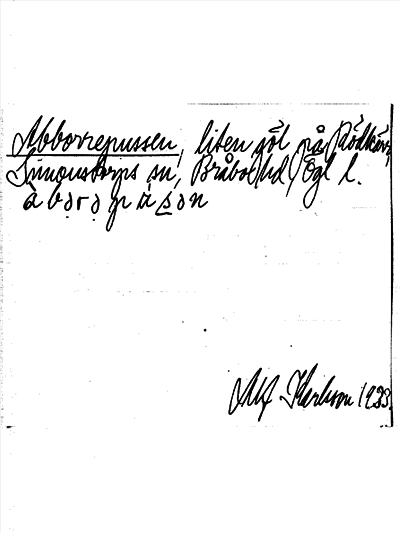 Abborrepussen, liten göl på Rödkärr,
Simonstorps sn, Bråbo hd, Ögl l.
Alf Karlsson 1933.